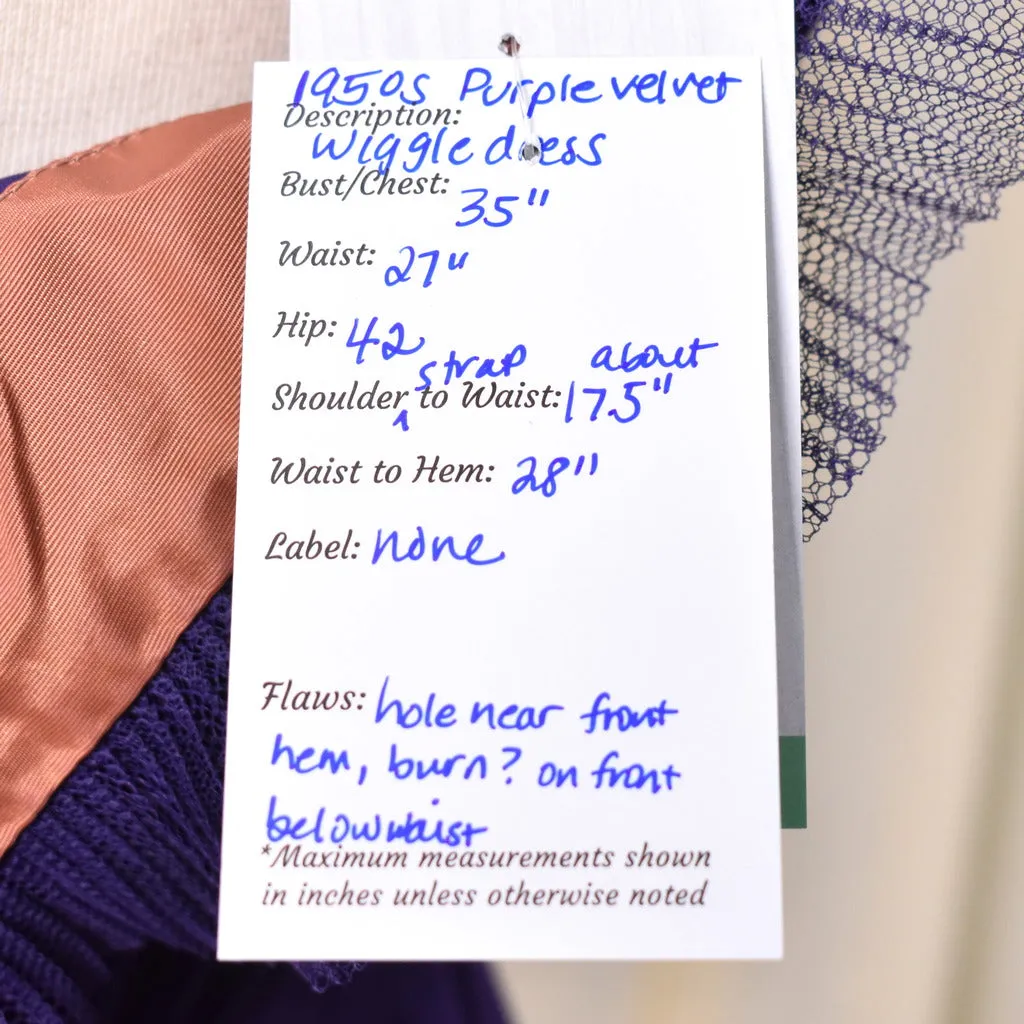 1950s Purple velvet
Description:
wiggle dress
Bust/Chest: 35"
Waist: 27"
Hip: 42
strap about
Shoulder ^ to Waist: 17.5"
Waist to Hem: 28"
Label: none
Flaws: hole near front
hem, burn? on front
below waist
*Maximum measurements shown
in inches unless otherwise noted